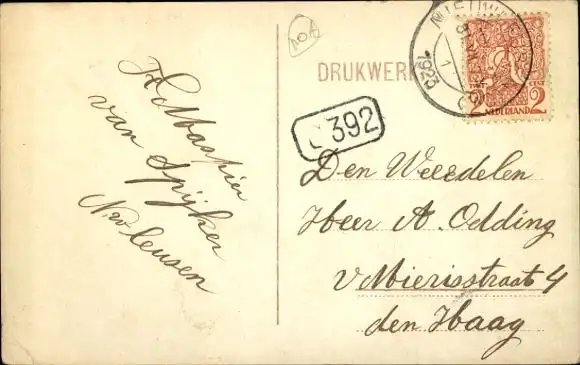 H. Mastier
van Spijker
Nw leusen
10A
DRUKWERK
392
1923
2 2
NEDERLAND
Den Weledelen
Heer A. Odding
v Mierisstraat 4
den Haag